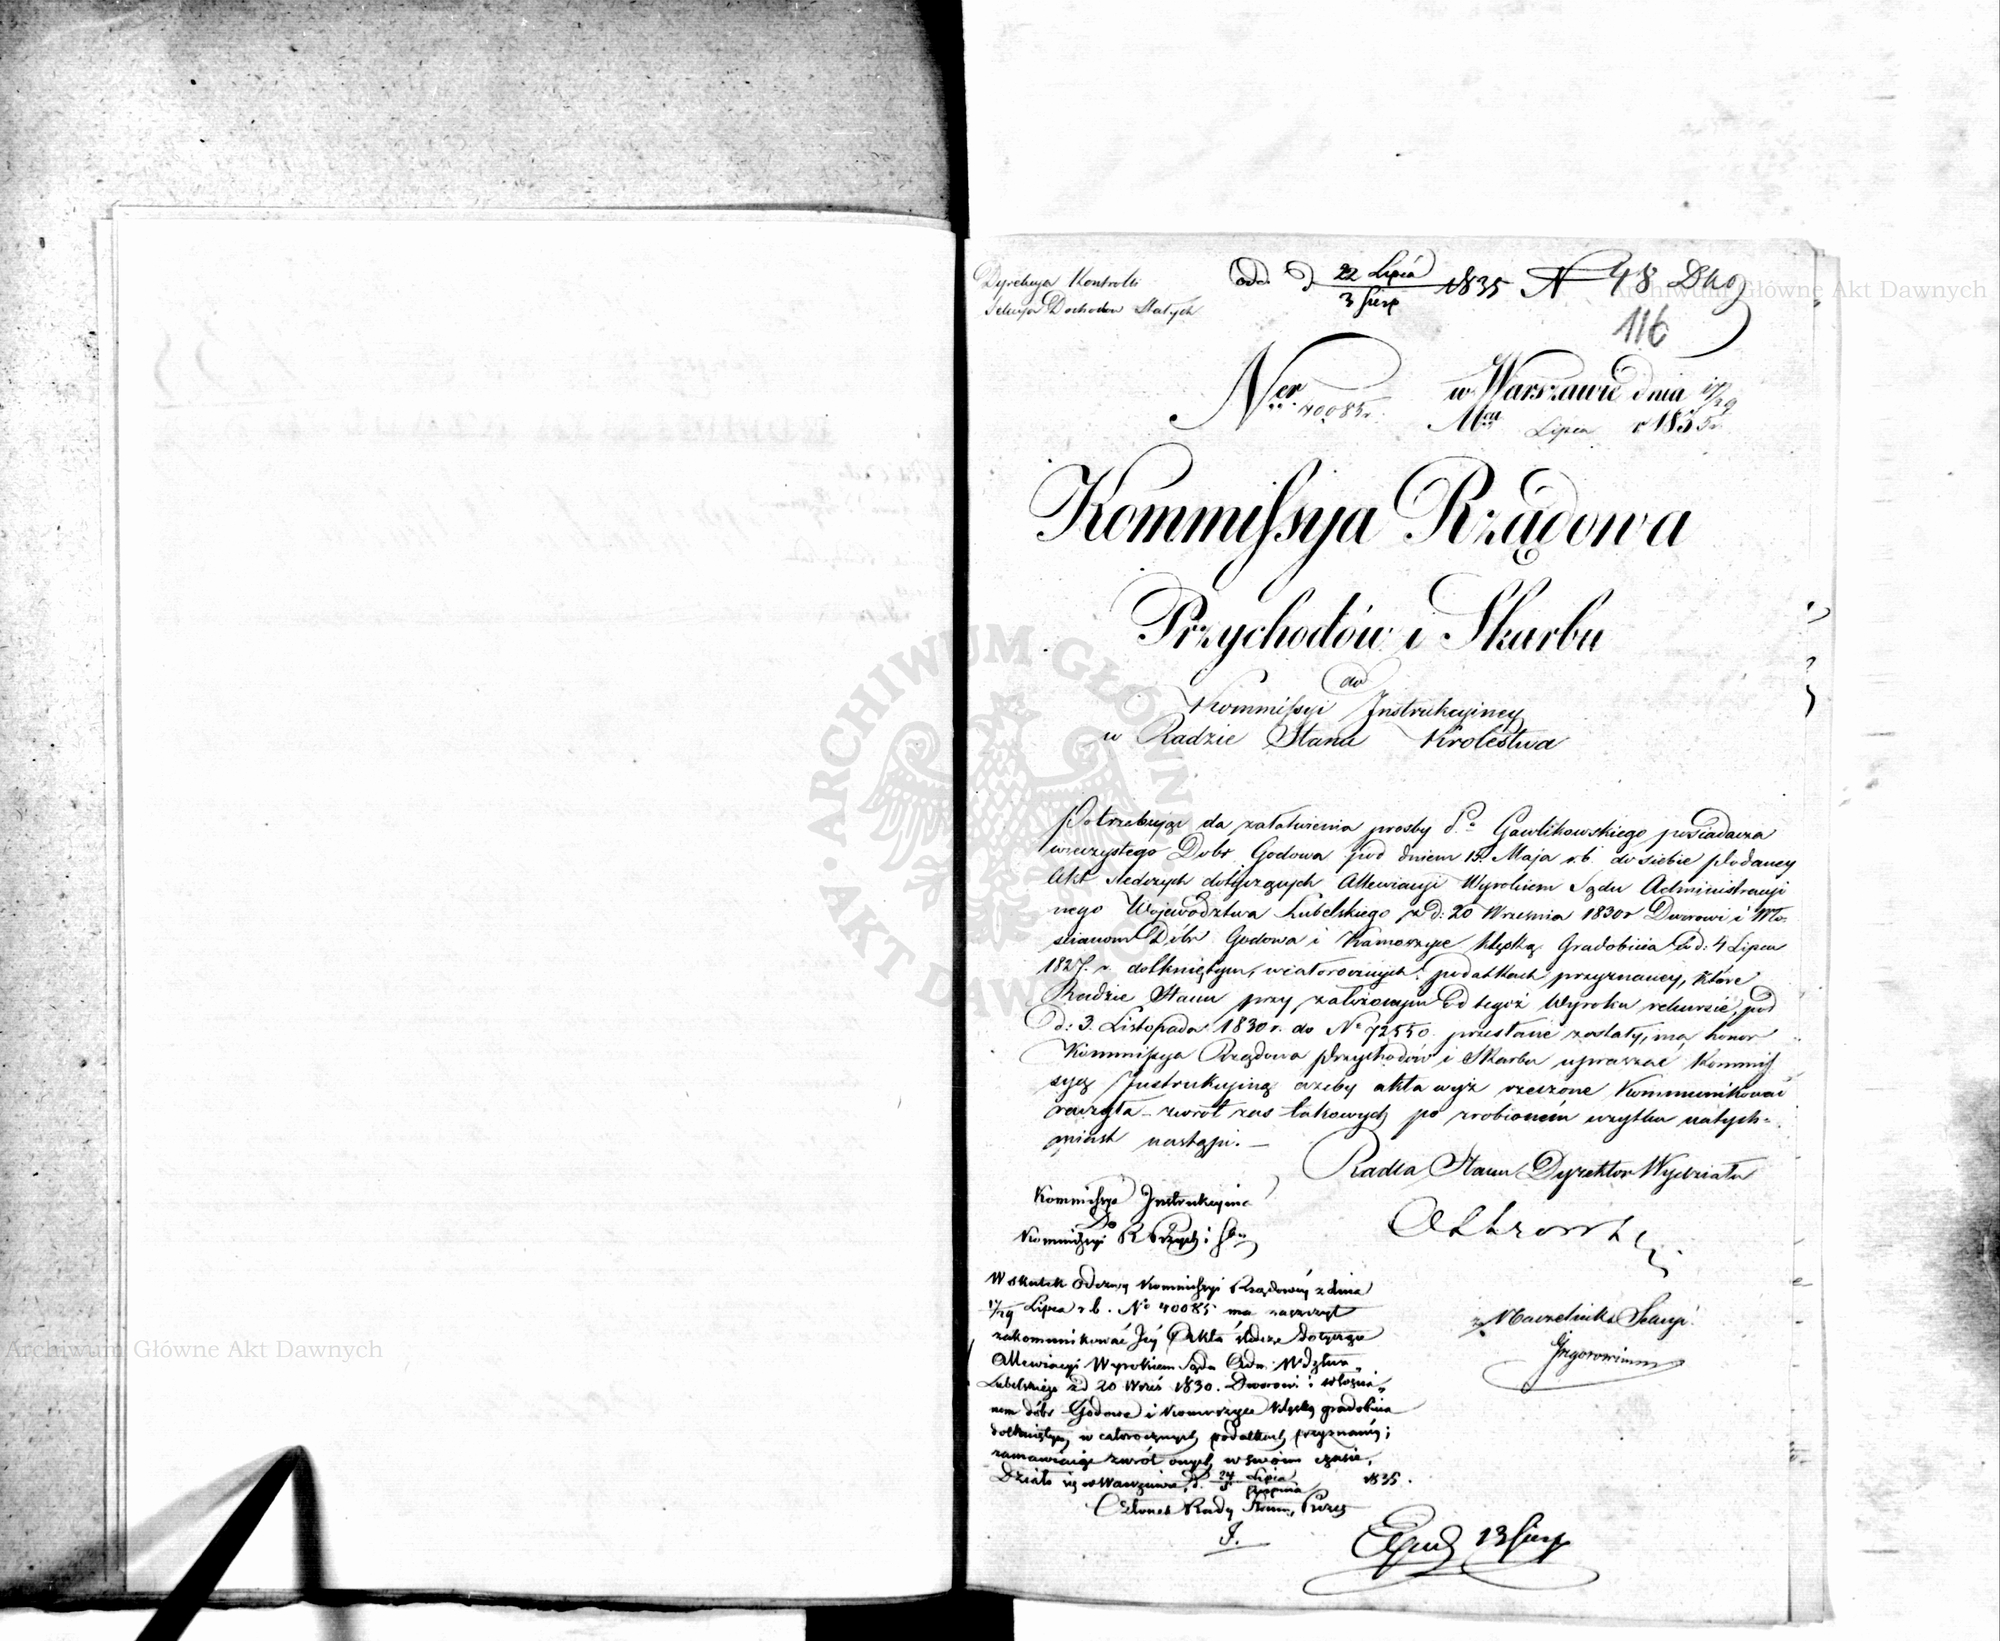 Dyrekcya Kontrolli
Sekcya Dochodów Stałych
od. d. 22 Lipca / 3 Sierp 1835 N 48
116
Ner 40085. w Warszawie dnia 17/29
Mca Lipca r 1835.
Kommissyja Rządowa
Przychodów i Skarbu
do
Kommissyi Instrukcyiney
w Radzie Stanu Krolestwa
Potrzebując do załatwienia prosby Po Gawlikowskiego posiadacza
wieczystego Dobr Godowa pod dniem 15 Maja r.b. do siebie podaney
Akt sledczych dotyczących Allewiacyi Wyrokiem Sądu Administracyi
nego Województwa Lubelskiego z d: 20 Wrzesnia 1830 r Dworowi i Wło-
scianom Dóbr Godowa i Kamorzyce klęską Gradobicia w d: 4 Lipca
1827. r. dotkniętym, w całorocznych podatkach przyznaney, które
Radzie Stanu przy założonym od tegoż Wyroku rekursie, pod
d: 3. Listopada 1830 r. do No 72550 przesłane zostały, ma honor
Kommissya Rządowa Przychodów i Skarbu upraszać Kommis
syą Instrukcyiną ażeby akta wyż rzeczone Kommunikować
raczyła – zwrot zas takowych po zrobionem użytku natych-
miast nastąpi. —
Radca Stanu Dyrektor Wydziału
Kommissya Instrukcyina
Do
Kommissyi R Przych i Sbu
z. Naczelnika Sekcyi
Grzgorowicz
W skutek odezwy Kommissyi Rządowéy z dnia
17/29 Lipca r.b. No 40085 ma zaszczyt
zakommunikować Jéy Akta śledcze dotyczące
Allewiacyi Wyrokiem Sądu Adm. Wdztwa
Lubelskiego z d 20 Wrześ 1830. Dworowi i włościa-
nom dóbr Godowa i Komorzyce klęską gradobicia
dotkniętym, w całorocznych podatkach przyznanéy;
zamawiaiąc zwrót onych w swoim czasie.
Działo się w Warszawie, d. 24 Lipca / 5 Sierpnia 1835.
Członek Rady Stanu, Prezes
J.
Exped 13 Sierp
Archiwum Główne Akt Dawnych
Archiwum Główne Akt Dawnych
ARCHIWUM GŁÓWNE AKT DAWNYCH